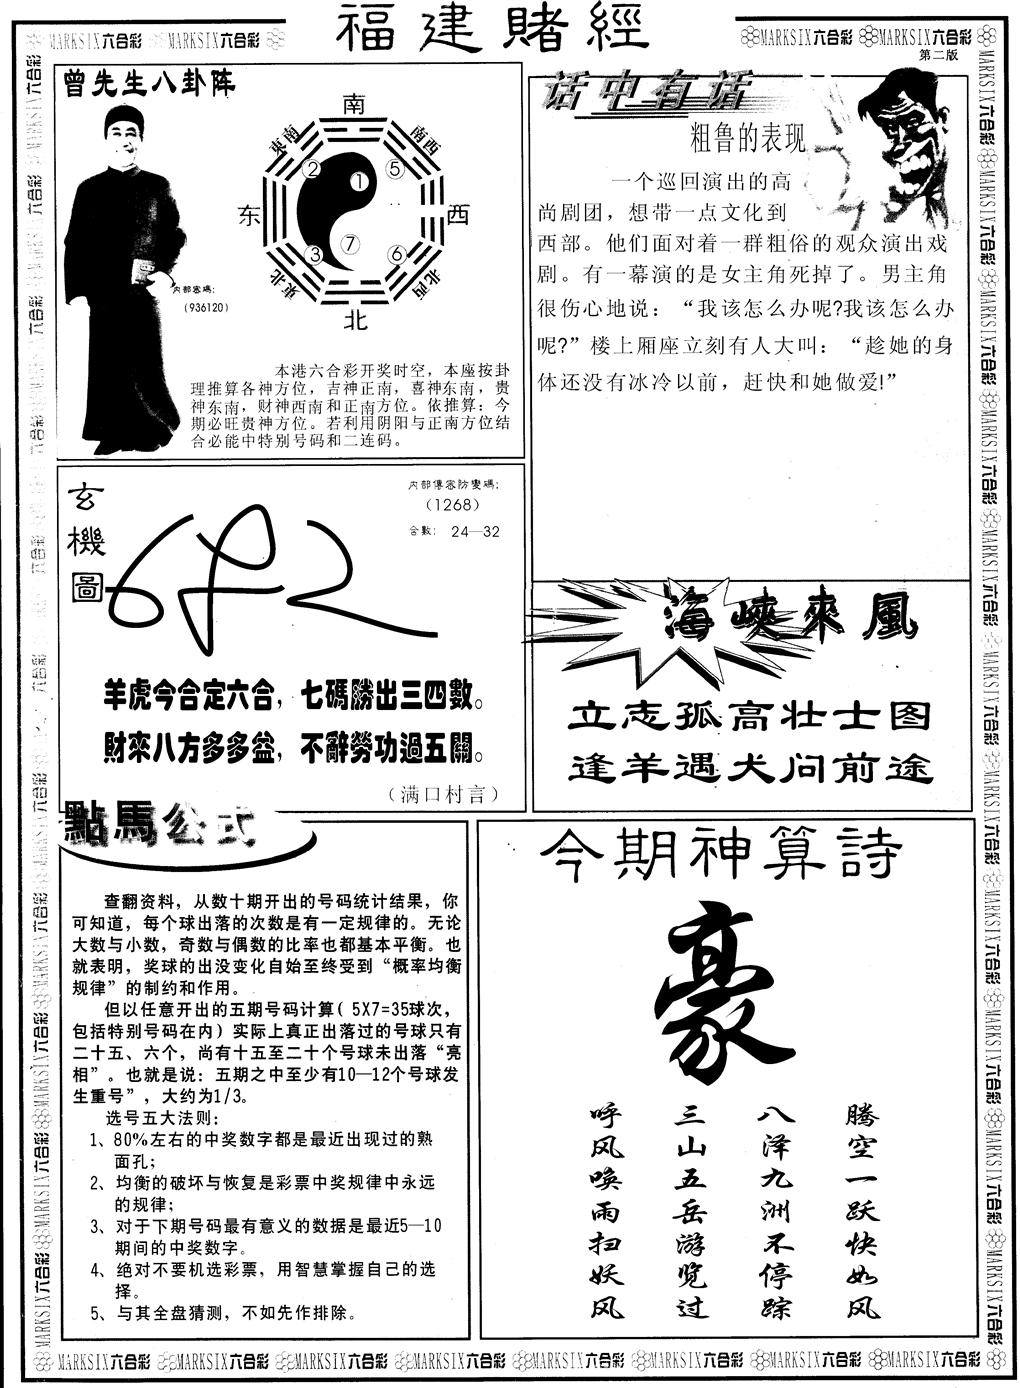 福建賭經
MARKSIX六合彩 MARKSIX六合彩
MARKSIX六合彩 MARKSIX六合彩
第二版
曾先生八卦阵
南
東南
南西
②
①
⑤
东
西
③
⑦
⑥
東北
北西
北
内部密碼：
（936120）
本港六合彩开奖时空，本座按卦
理推算各神方位，吉神正南，喜神东南，贵
神东南，财神西南和正南方位。依推算：今
期必旺贵神方位。若利用阴阳与正南方位结
合必能中特别号码和二连码。
话中有话
粗鲁的表现
一个巡回演出的高
尚剧团，想带一点文化到
西部。他们面对着一群粗俗的观众演出戏
剧。有一幕演的是女主角死掉了。男主角
很伤心地说：“我该怎么办呢?我该怎么办
呢?”楼上厢座立刻有人大叫：“趁她的身
体还没有冰冷以前，赶快和她做爱!”
玄機圖
内部傳密防變碼：
（1268）
合數： 24—32
羊虎今合定六合，七碼勝出三四數。
財來八方多多益，不辭勞功過五關。
（满口村言）
海峽來風
立志孤高壮士图
逢羊遇犬问前途
點馬公式
查翻资料，从数十期开出的号码统计结果，你
可知道，每个球出落的次数是有一定规律的。无论
大数与小数，奇数与偶数的比率也都基本平衡。也
就表明，奖球的出没变化自始至终受到“概率均衡
规律”的制约和作用。
但以任意开出的五期号码计算（5X7=35球次，
包括特别号码在内）实际上真正出落过的号球只有
二十五、六个，尚有十五至二十个号球未出落“亮
相”。也就是说：五期之中至少有10—12个号球发
生重号”，大约为1/3。
选号五大法则：
1、80%左右的中奖数字都是最近出现过的熟
面孔；
2、均衡的破坏与恢复是彩票中奖规律中永远
的规律；
3、对于下期号码最有意义的数据是最近5—10
期间的中奖数字。
4、绝对不要机选彩票，用智慧掌握自己的选
择。
5、与其全盘猜测，不如先作排除。
今期神算詩
豪
腾空一跃快如风
八泽九洲不停踪
三山五岳游览过
呼风唤雨扫妖风
MARKSIX六合彩 MARKSIX六合彩 MARKSIX六合彩 MARKSIX六合彩 MARKSIX六合彩 MARKSIX六合彩 MARKSIX六合彩 MARKSIX六合彩